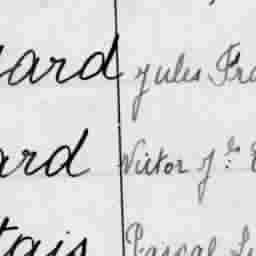 ard Jules Fra
ard Victor J.e
tais Pascal